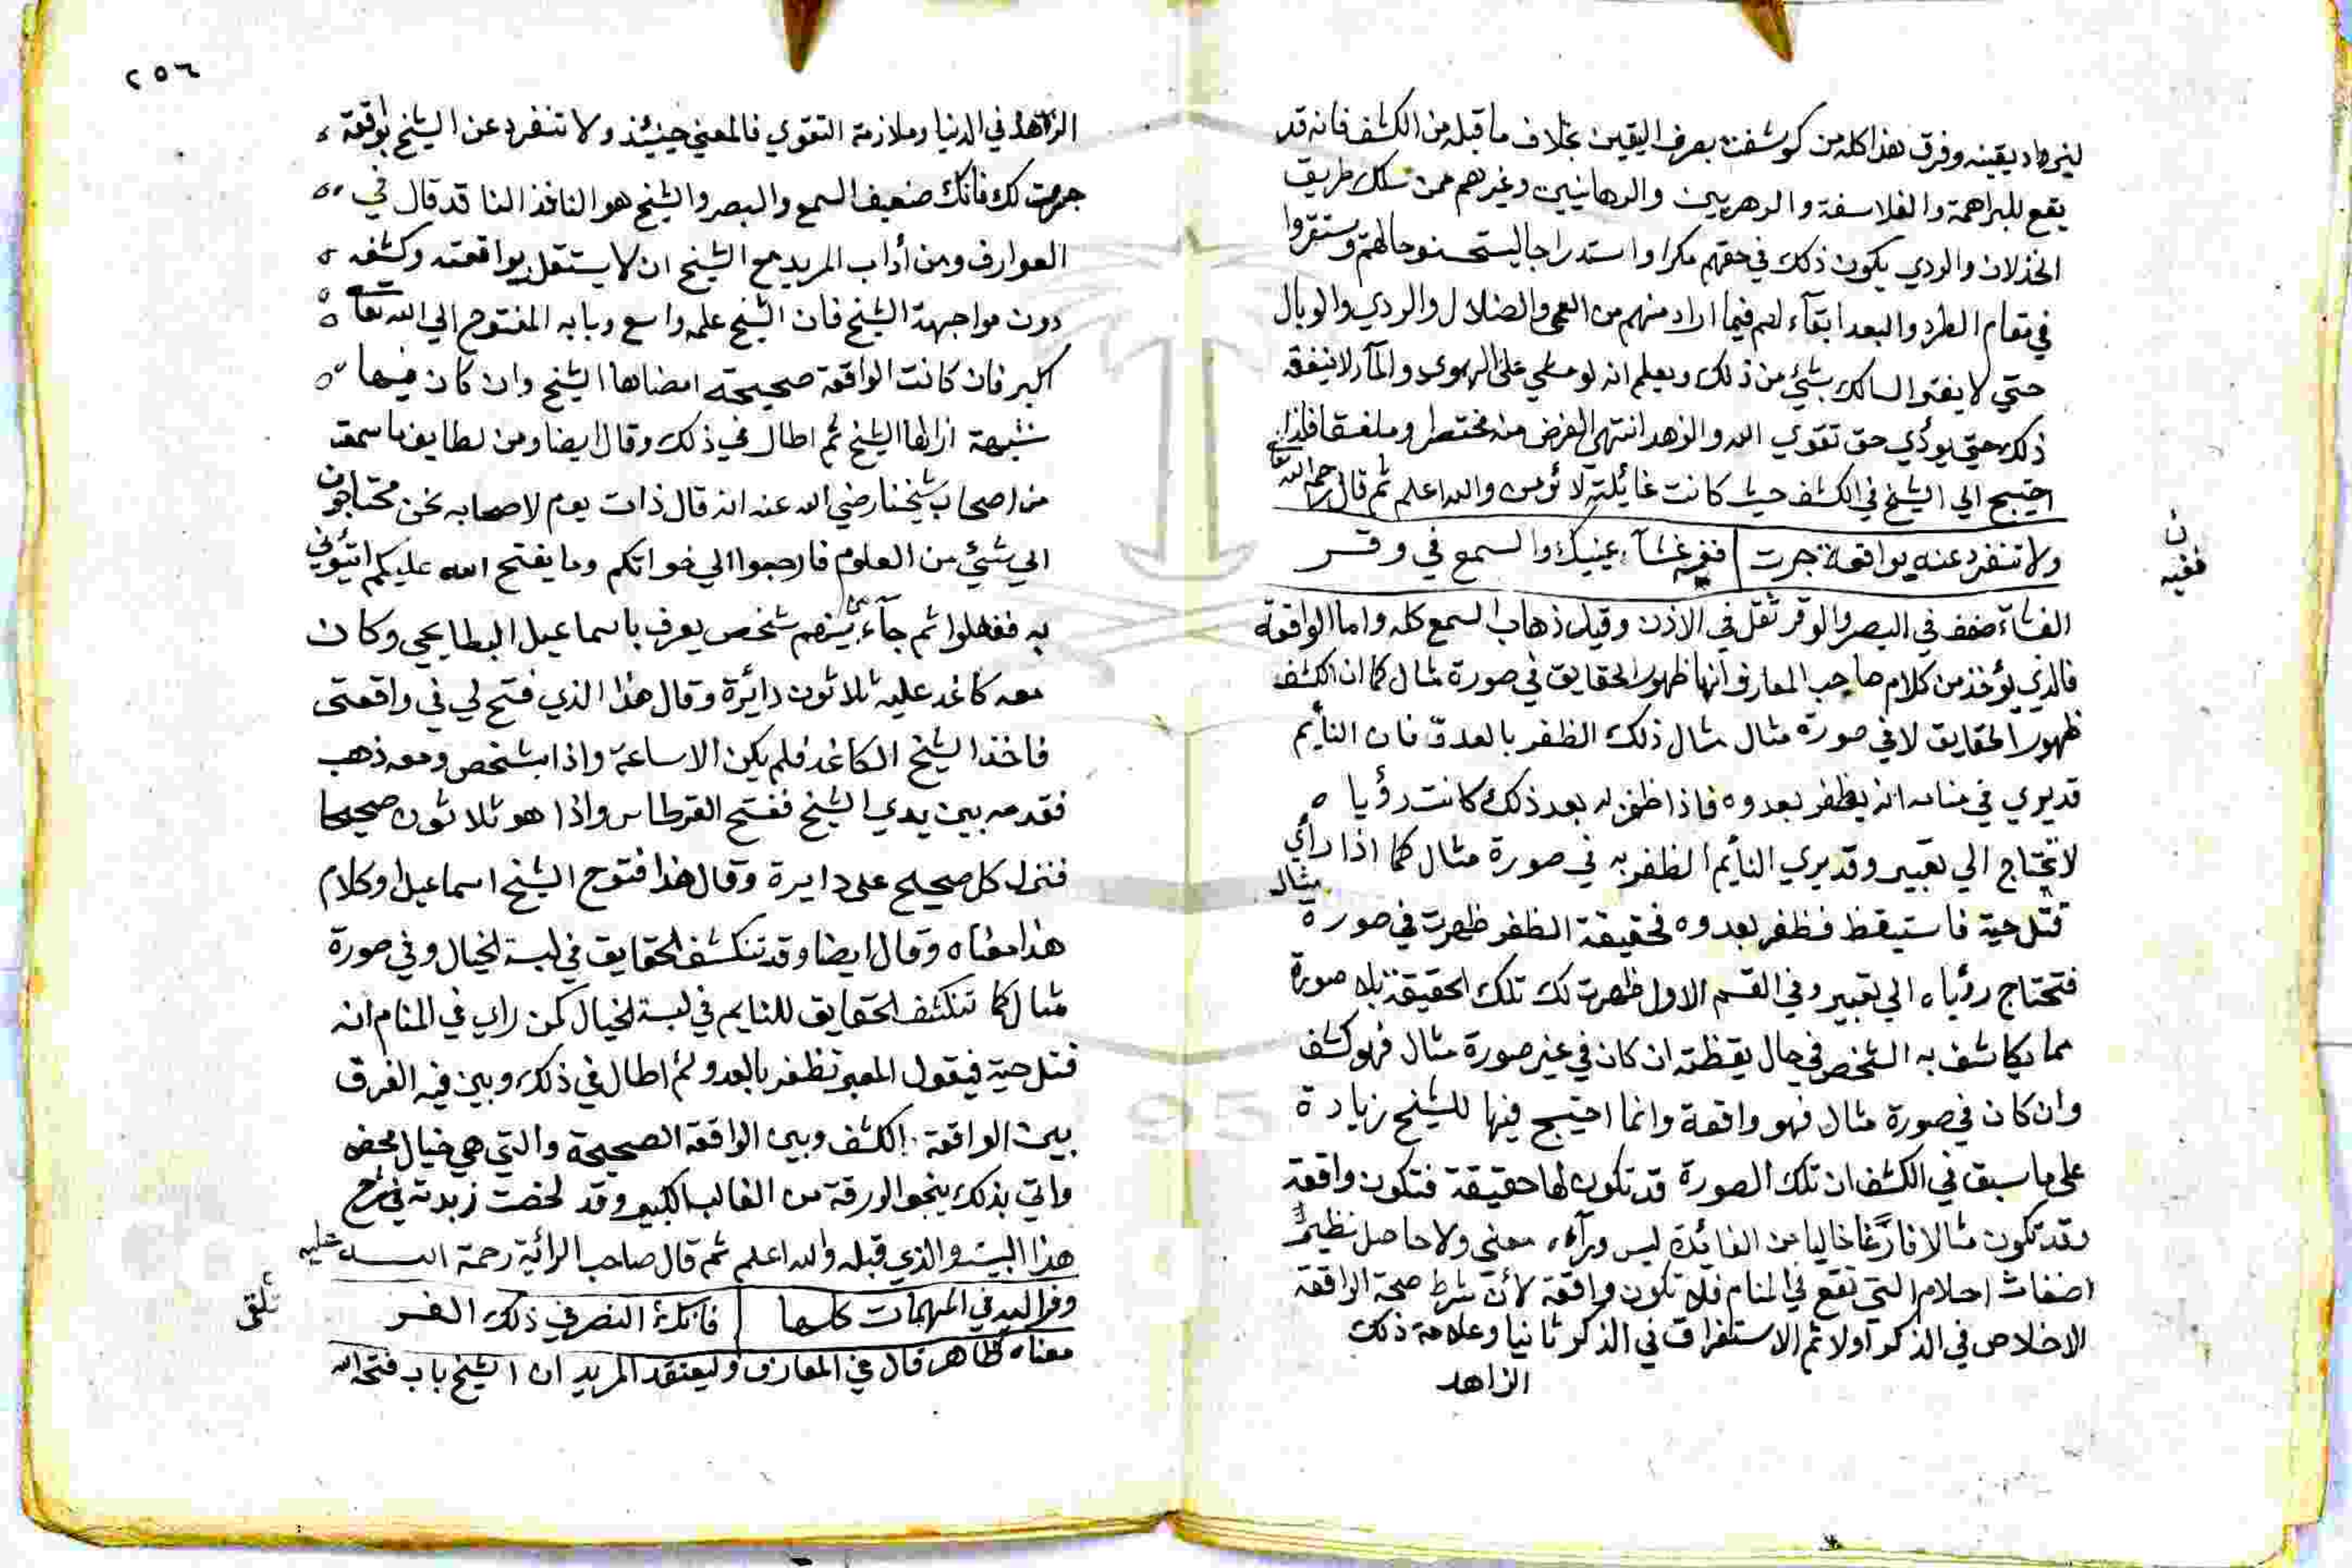 ليزداد يقينه وفوق هذا كله من كوشفت بصرف اليقين بخلاف ما قبله من الكشف فانه قد
يقع للبراهمة والفلاسفة والدهريين والرهابيين وغيرهم ممن سلك طريق
الخذلان والردي يكون ذلك في حقهم مكرا واستدراجا ليستحسنو حالهم ويستقروا
في مقام الطرد والبعد ابقآء لهم فيما اراد منهم من العمي والضلال والردي والوبال
حتي لا يغتر السالك بشئ من ذلك ويعلم انه لو مشي علي الهوي والمآ لا ينفعه
ذلك حتي يؤدي حق تقوي الله والزهد انتهي الغرض منه مختصرا وملفقا فاذا
احتيج الي الشيخ في الكشف حيث كانت غائيلته لا تؤمن والله اعلم ثم قال رحمه الله تعا
ولا تنفرد عنه بواقعة جرت ففيه غشآء عينيك والسمع في وقر
ن
ففيه
الغشاء ضعف في البصر والوقر ثقل في الاذن وقيل ذهاب السمع كله واما الواقعة
فالذي يؤخذ من كلام صاحب المعارف انها ظهور الحقايق في صورة مثال كما ان الكشف
ظهور الحقايق لا في صورة مثال مثال ذلك الظفر بالعدو فان النأيم
قد يري في منامه انه يظفر بعدوه فاذا ظفر به بعد ذلك كانت رؤيا ه
لا تحتاج الي تعبير وقد يري النأيم الظفر به في صورة مثال كما اذا رأي
قتل حية فاستيقظ فظفر بعدوه فحقيقة الظفر ظهرت في صورة مثال
فتحتاج رؤياه الي تعبير وفي القسم الاول ظهرت لك تلك الحقيقة بلا صورة
مما يكاشف به الشخص في حال يقظته ان كان في غير صورة مثال فهو كشف
وان كان في صورة مثال فهو واقعة وانما احتيج فيها للشيخ زيادة
علي ما سبق في الكشف ان تلك الصورة قد تكون لها حقيقة فتكون واقعة
وقد تكون مثالا فارغا خاليا من الفائدة ليس ورآءه معني ولا حاصل نظير
اضغاث احلام التي تقع في المنام فلا تكون واقعة لأن شرط صحة الواقعة
الاخلاص في الذكر اولا ثم الاستغراق في الذكر ثانيا وعلامة ذلك
الزاهد
٢٥٦
الزاهد في الدنيا وملازمة التقوي فالمعني حينئذ ولا تنفرد عن الشيخ بواقعة
جرت لك فانك ضعيف السمع والبصر والشيخ هو النافذ النا قد قال في
العوارف ومن أداب المريد مع الشيخ ان لا يستقل بواقعته وكشفه
دون مواجهة الشيخ فان الشيخ علمه واسع وبابه المفتوح الي الله تعا
اكبر فان كانت الواقعة صحيحة امضاها الشيخ وان كان فيها
شبهة ازالها الشيخ ثم اطال في ذلك وقال ايضا ومن لطايف ما سمعت
من اصحاب شيخنا رضي الله عنه انه قال ذات يوم لاصحابه نحن محتاجون
الي شئي من العلوم فارجعوا الي خواتكم وما يفتح الله عليكم ائتوني
به ففعلوا ثم جآء منهم شخص يعرف باسماعيل البطايحي وكان
معه كاغد عليه ثلاثون دائرة وقال هذا الذي فتح لي في واقعتي
فاخذ الشيخ الكاغد فلم يكن الا ساعة واذا بشخص ومعه ذهب
فقدمه بين يدي الشيخ ففتح القرطاس واذا هو ثلاثون صحيحا
فنزل كل صحيح علي دايرة وقال هذا فتوح الشيخ اسماعيل او كلام
هذا معناه وقال ايضا وقد تنكشف الحقايق في لبسة الخيال وفي صورة
مثال كما تنكشف الحقايق للنايم في لبسة الخيال كمن راي في المنام انه
قتل حية فيقول المعبر تظفر بالعدو ثم اطال في ذلك وبين فيه الفرق
بين الواقعة الكشف وبين الواقعة الصحيحة والتي هي خيال محض
واتي بذلك بنحو الورقة من القالب الكبير وقد لخصت زبدته في شرح
هذا البيت والذي قبله والله اعلم ثم قال صاحب الرائية رحمة الله عليه
وفر اليه في المهمات كلها فانك النصر في ذلك الفر
تلقي
معناه ظاهر قال في المعارف وليعتقد المريد ان الشيخ باب فتحه الله